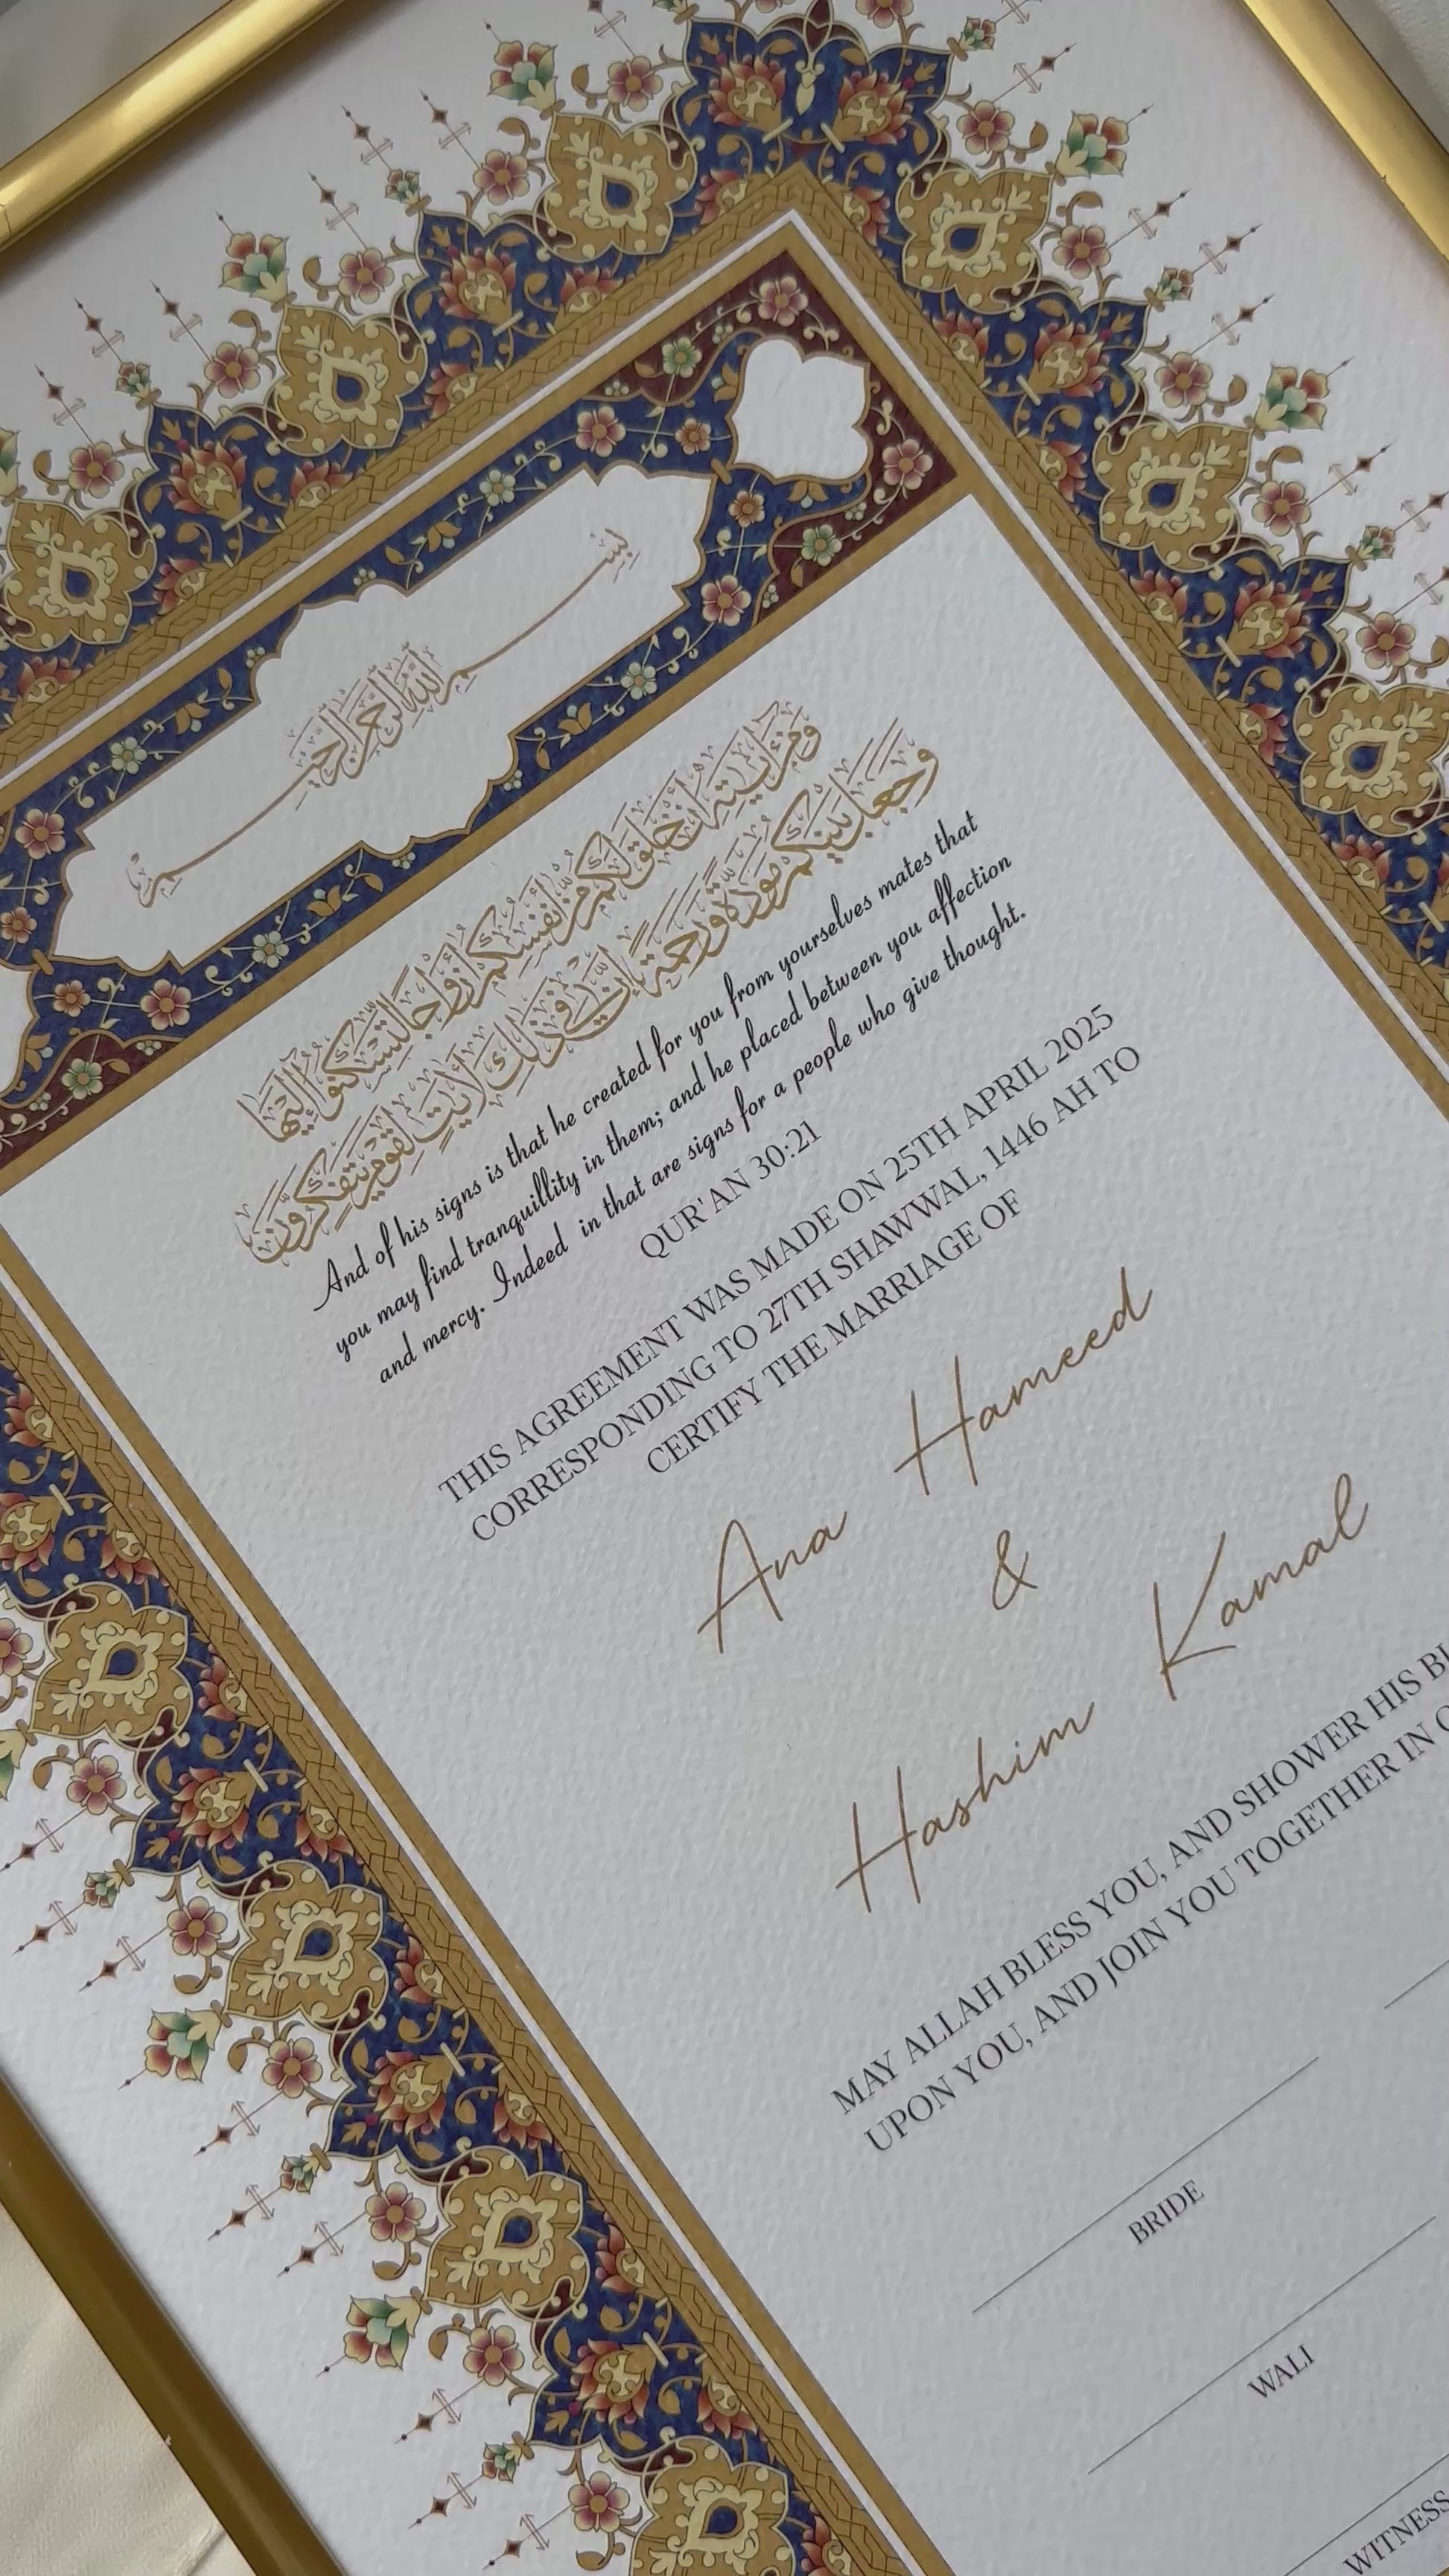 بِسْمِ اللَّهِ الرَّحْمَٰنِ الرَّحِيمِ
وَمِنْ آيَاتِهِ أَنْ خَلَقَ لَكُم مِّنْ أَنفُسِكُمْ أَزْوَاجًا لِّتَسْكُنُوا إِلَيْهَا
وَجَعَلَ بَيْنَكُم مَّوَدَّةً وَرَحْمَةً إِنَّ فِي ذَٰلِكَ لَآيَاتٍ لِّقَوْمٍ يَتَفَكَّرُونَ
And of his signs is that he created for you from yourselves mates that
you may find tranquillity in them; and he placed between you affection
and mercy. Indeed in that are signs for a people who give thought.
QUR'AN 30:21
THIS AGREEMENT WAS MADE ON 25TH APRIL 2025
CORRESPONDING TO 27TH SHAWWAL, 1446 AH TO
CERTIFY THE MARRIAGE OF
Ana Hameed
&
Hashim Kamal
MAY ALLAH BLESS YOU, AND SHOWER HIS
UPON YOU, AND JOIN YOU TOGETHER IN
BRIDE
WALI
WITNESS